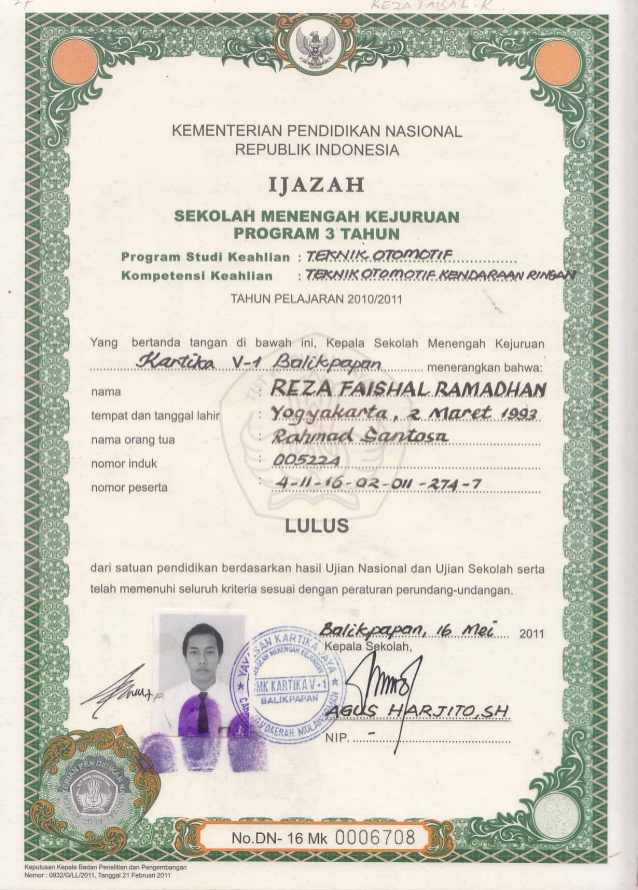 REZA FAISAL R
KEMENTERIAN PENDIDIKAN NASIONAL
REPUBLIK INDONESIA
IJAZAH
SEKOLAH MENENGAH KEJURUAN
PROGRAM 3 TAHUN
Program Studi Keahlian : TEKNIK OTOMOTIF
Kompetensi Keahlian : TEKNIK OTOMOTIF KENDARAAN RINGAN
TAHUN PELAJARAN 2010/2011
Yang bertanda tangan di bawah ini, Kepala Sekolah Menengah Kejuruan
Kartika V-1 Balikpapan menerangkan bahwa:
nama : REZA FAISHAL RAMADHAN
tempat dan tanggal lahir : Yogyakarta, 2 Maret 1993
nama orang tua : Rahmad Santosa
nomor induk : 005224
nomor peserta : 4-11-16-02-011-274-7
LULUS
dari satuan pendidikan berdasarkan hasil Ujian Nasional dan Ujian Sekolah serta
telah memenuhi seluruh kriteria sesuai dengan peraturan perundang-undangan.
Balikpapan, 16 Mei 2011
Kepala Sekolah,
YAYASAN KARTIKA JAYA
SEKOLAH MENENGAH KEJURUAN
SMK KARTIKA V-1
BALIKPAPAN
AGUS HARJITO, SH
NIP. -
No.DN- 16 Mk 0006708
Keputusan Kepala Badan Penelitian dan Pengembangan
Nomor : 0932/G/LL/2011, Tanggal 21 Februari 2011